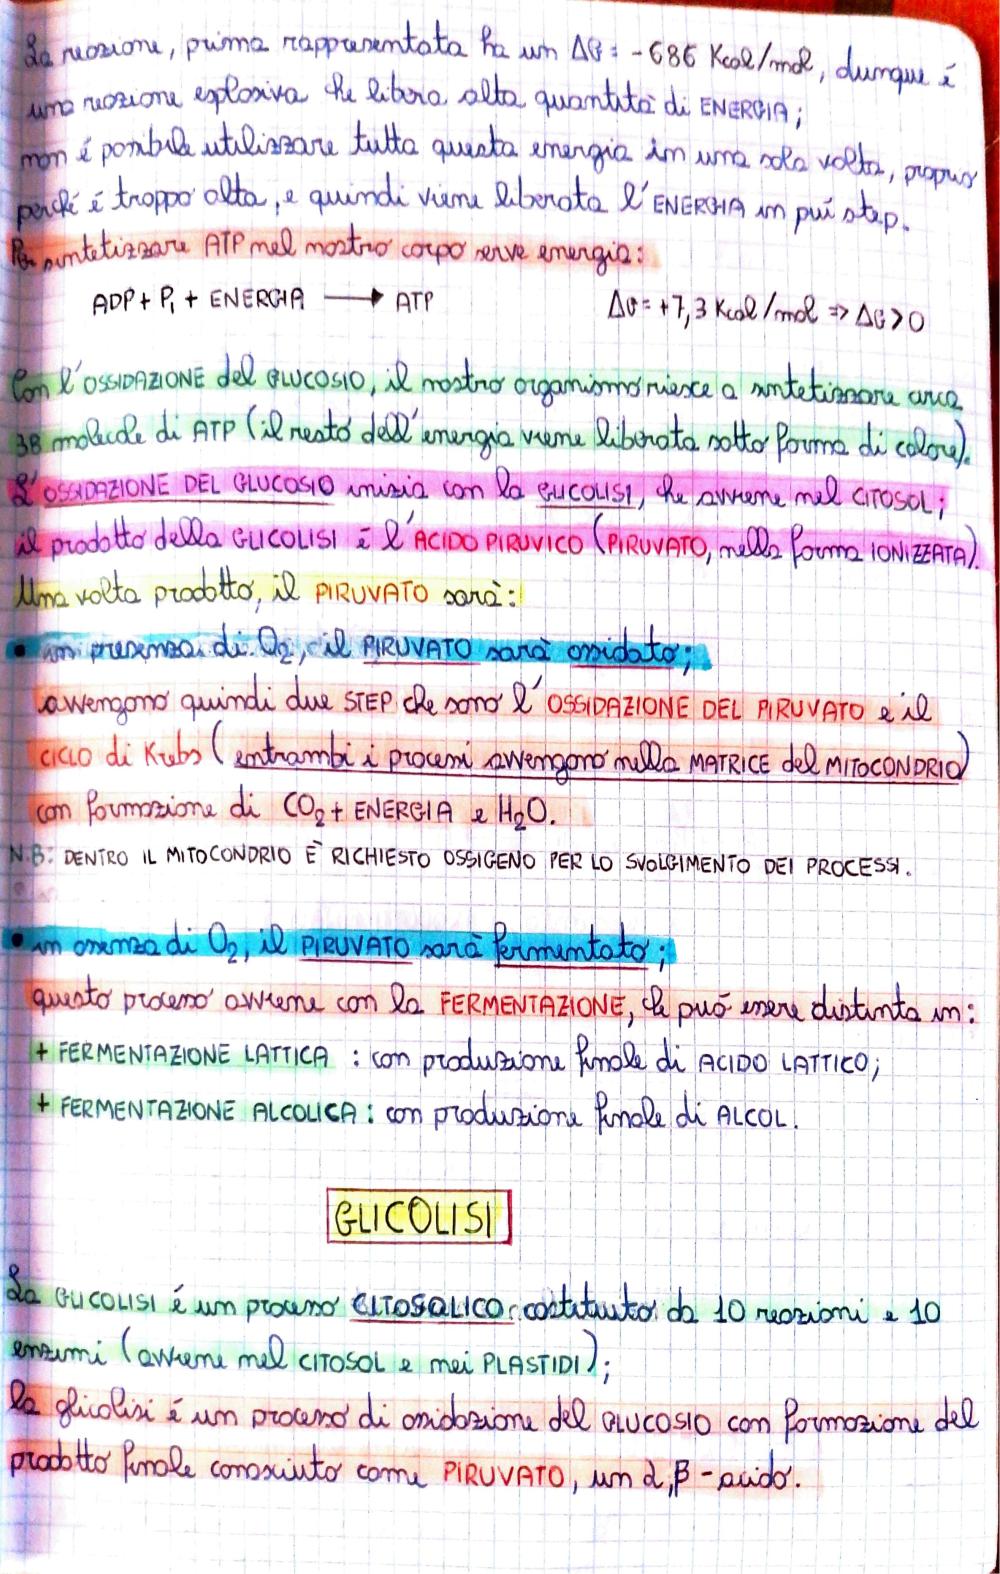 La reazione, prima rappresentata ha un ΔG = -686 Kcal/mol, dunque é
una reazione esplosiva che libera alta quantitá di ENERGIA;
non é possibile utilizzare tutta questa energia in una sola volta, proprio
perché é troppo alta, e quindi viene liberata l'ENERGIA in puí step.
Per sintetizzare ATP nel nostro corpo serve energia:
ADP + Pi + ENERGIA → ATP ΔG = +7,3 Kcal/mol => ΔG > 0
Con l'OSSIDAZIONE del GLUCOSIO, il nostro organismo riesce a sintetizzare circa
38 molecole di ATP (il resto dell'energia viene liberata sotto forma di calore).
L'OSSIDAZIONE DEL GLUCOSIO inizia con la GLICOLISI, che avviene nel CITOSOL;
il prodotto della GLICOLISI é l'ACIDO PIRUVICO (PIRUVATO, nella forma IONIZZATA).
Una volta prodotto, il PIRUVATO sará:
• in presenza di O2, il PIRUVATO sará ossidato;
avvengono quindi due STEP che sono l'OSSIDAZIONE DEL PIRUVATO e il
CICLO di Krebs (entrambi i processi avvengono nella MATRICE del MITOCONDRIO)
con formazione di CO2 + ENERGIA e H2O.
N.B: DENTRO IL MITOCONDRIO É RICHIESTO OSSIGENO PER LO SVOLGIMENTO DEI PROCESSI.
• in assenza di O2, il PIRUVATO sará fermentato;
questo processo avviene con la FERMENTAZIONE, che puó essere distinta in:
+ FERMENTAZIONE LATTICA : con produzione finale di ACIDO LATTICO;
+ FERMENTAZIONE ALCOLICA : con produzione finale di ALCOL.
GLICOLISI
La GLICOLISI é un processo CITOSOLICO costituito da 10 reazioni e 10
enzimi (avviene nel CITOSOL e nei PLASTIDI);
la glicolisi é un processo di ossidazione del GLUCOSIO con formazione del
prodotto finale conosciuto come PIRUVATO, un α,β - acido.